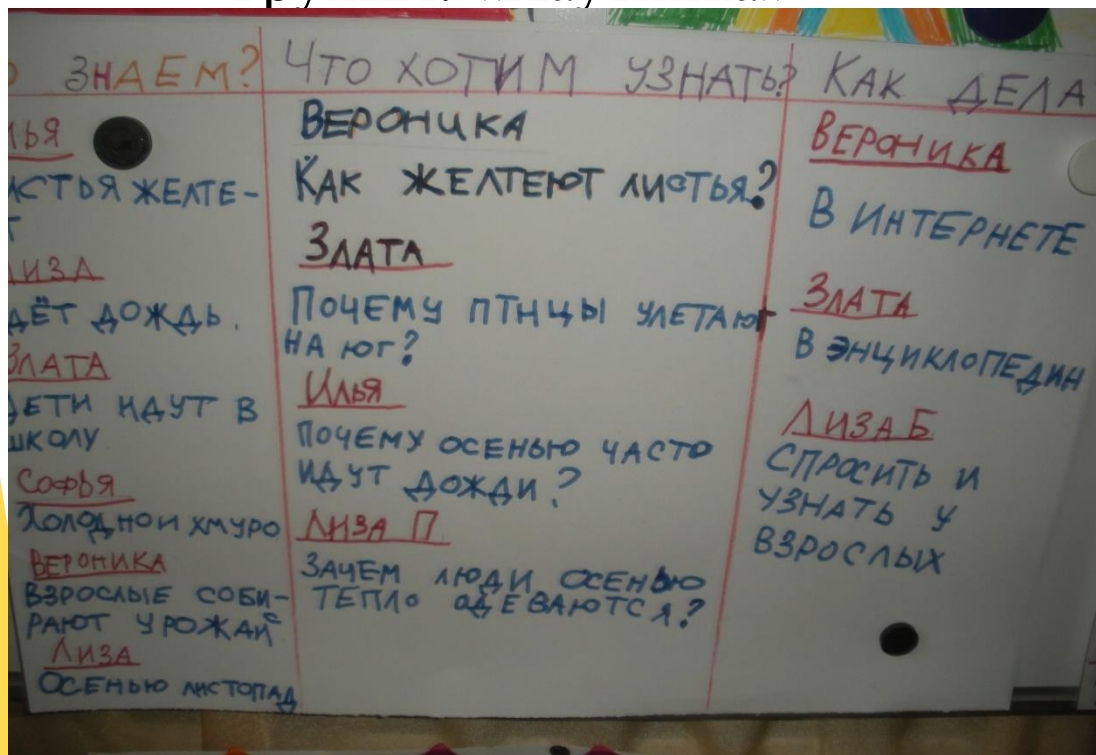 О ЗНАЕМ?
ЛЬЯ
ИСТЬЯ ЖЕЛТЕ-
Т
ЛИЗА
ДЁТ ДОЖДЬ.
ЗЛАТА
ДЕТИ ИДУТ В
ШКОЛУ
СОФЬЯ
ХОЛОДНО И ХМУРО
ВЕРОНИКА
ВЗРОСЛЫЕ СОБИ-
РАЮТ УРОЖАЙ
ЛИЗА
ОСЕНЬЮ ЛИСТОПАД
ЧТО ХОТИМ УЗНАТЬ?
ВЕРОНИКА
КАК ЖЕЛТЕЮТ ЛИСТЬЯ?
ЗЛАТА
ПОЧЕМУ ПТИЦЫ УЛЕТАЮТ
НА ЮГ?
ИЛЬЯ
ПОЧЕМУ ОСЕНЬЮ ЧАСТО
ИДУТ ДОЖДИ?
ЛИЗА П.
ЗАЧЕМ ЛЮДИ ОСЕНЬЮ
ТЕПЛО ОДЕВАЮТСЯ?
КАК ДЕЛА
ВЕРОНИКА
В ИНТЕРНЕТЕ
ЗЛАТА
В ЭНЦИКЛОПЕДИИ
ЛИЗА Б
СПРОСИТЬ И
УЗНАТЬ У
ВЗРОСЛЫХ